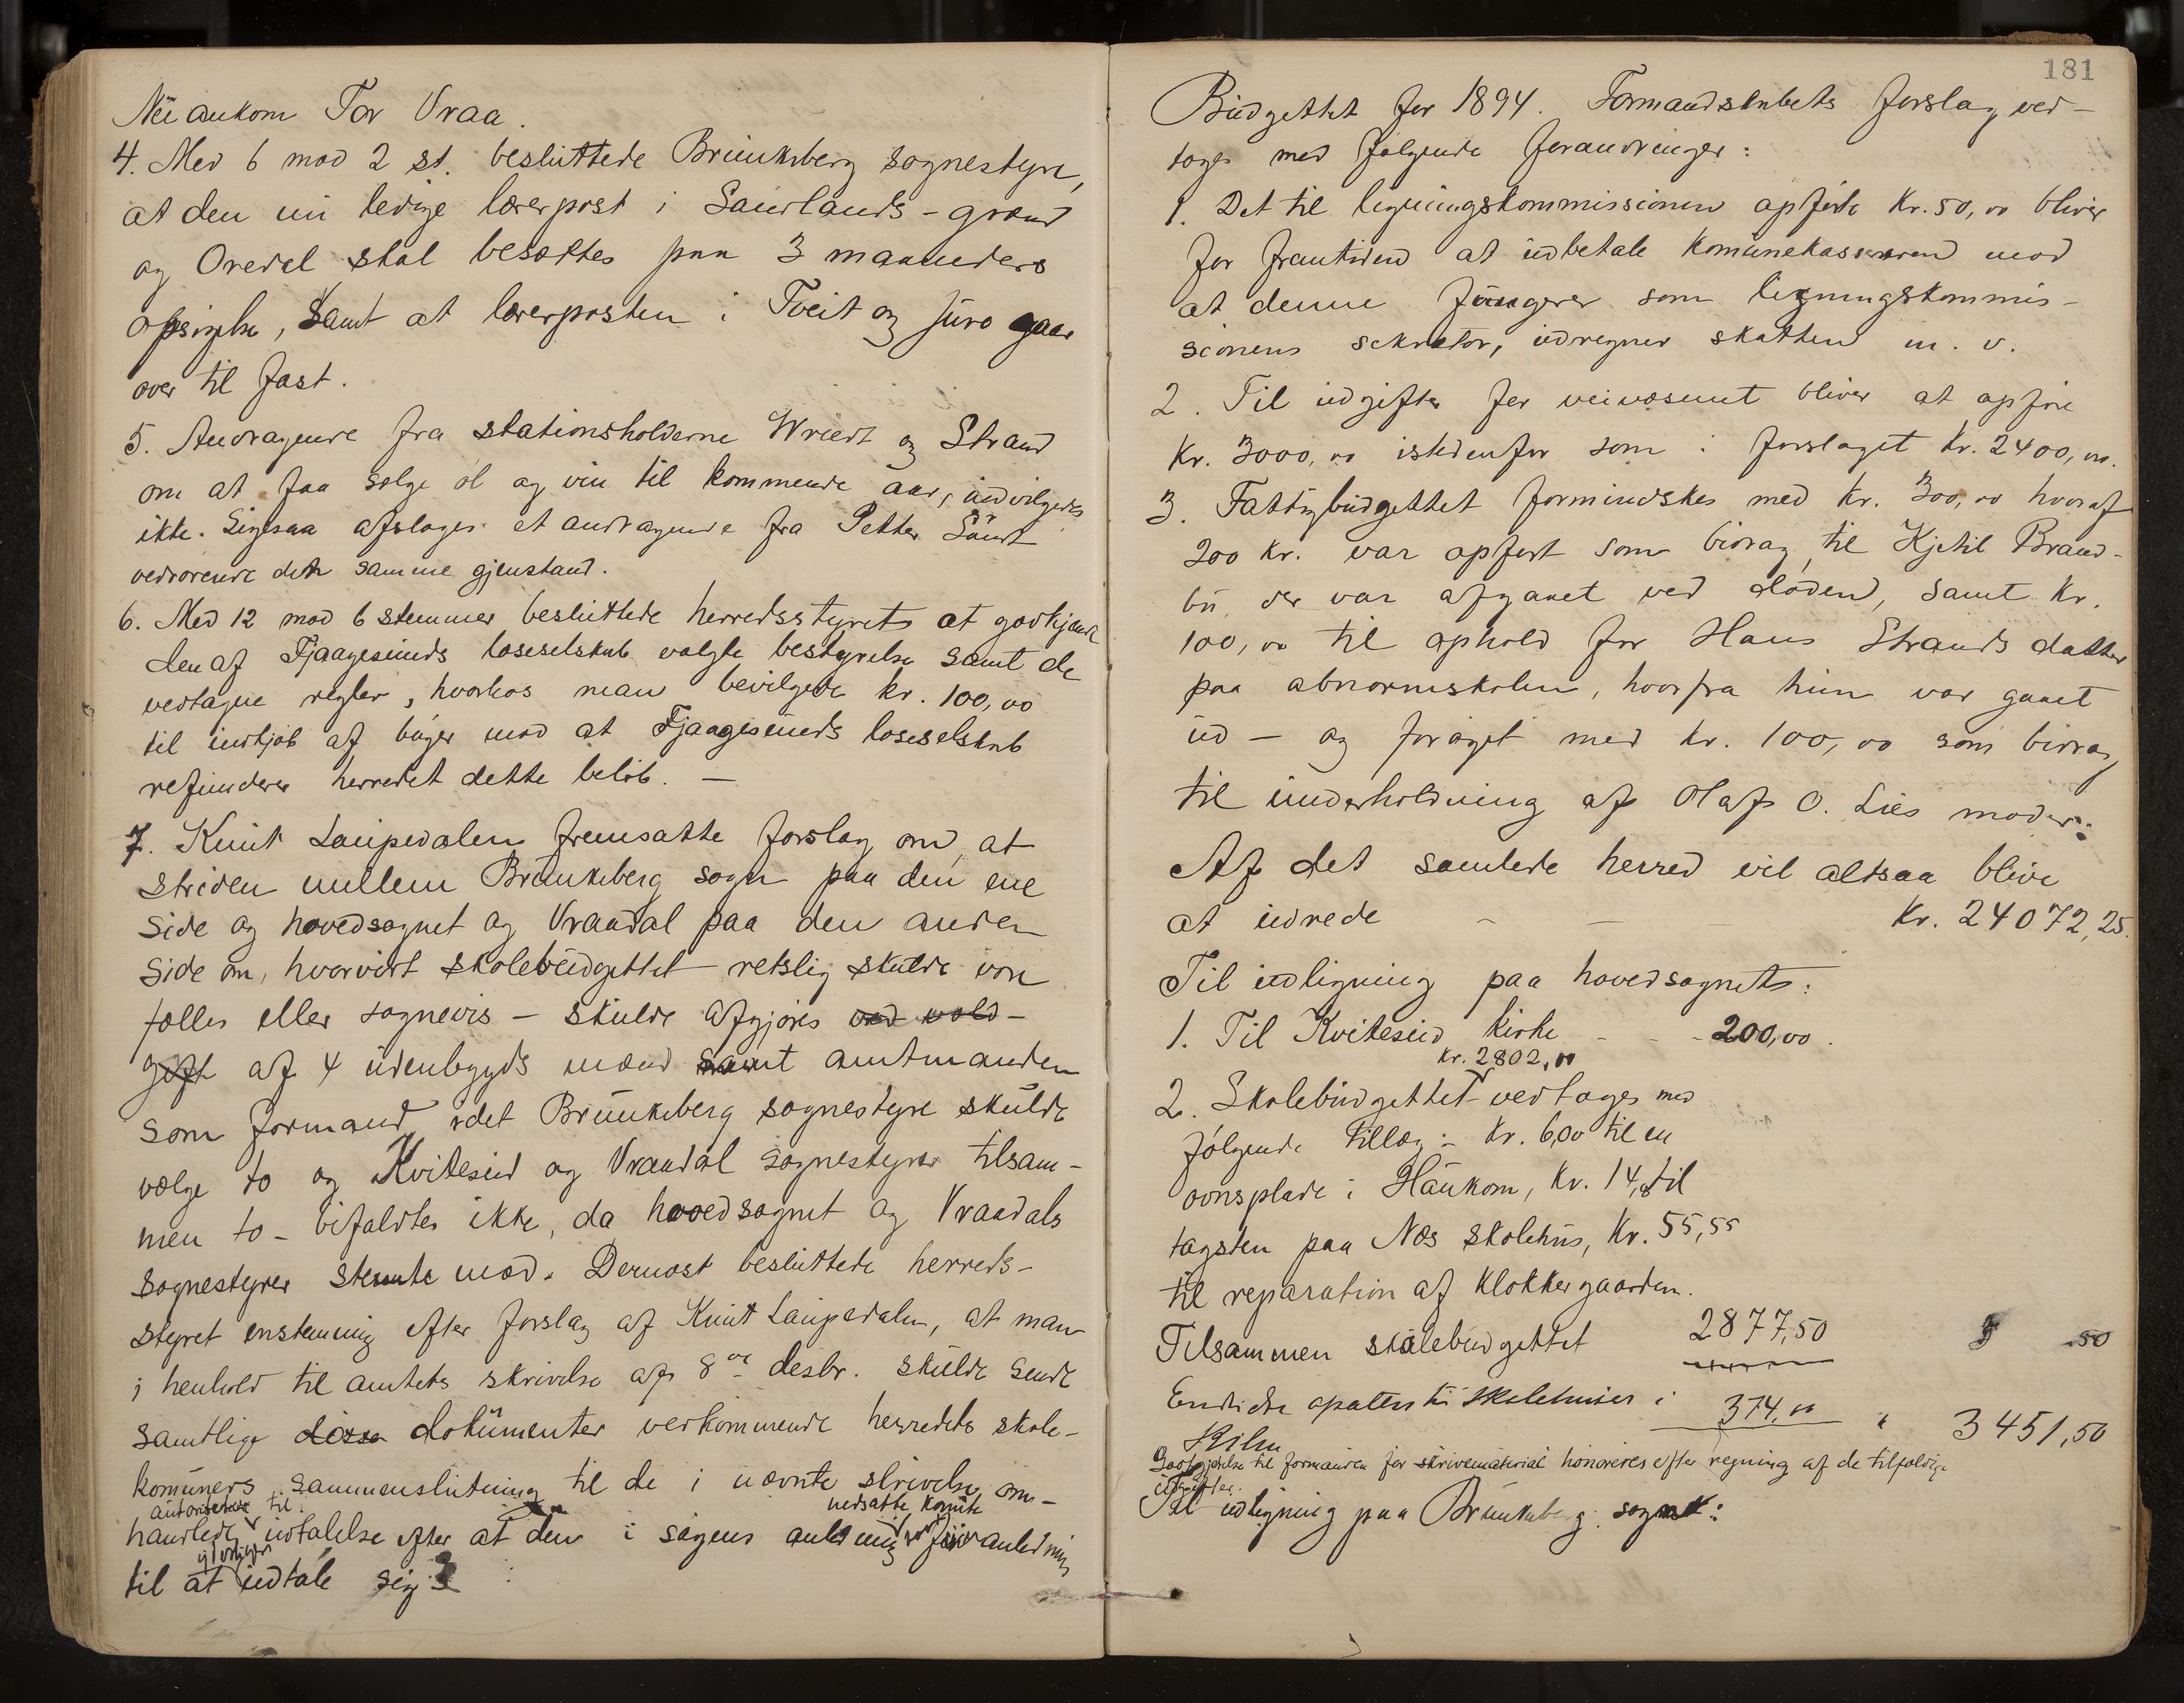 Nu ankom Tor Vraa.
4. Med 6 mod 2 st. besluttede Brunkeberg sognestyre,
at den nu ledige lærerpost i Saurlands-grænd
og Ordal skal besættes paa 3 maaneders
opsigelse, samt at lærerposten i Tveit og Juro gaar
over til fast.
5. Andragende fra stationsholderne Wriedt og Strand
om at faa sælge øl og vin til kommende aar, indvilgedes
ikke. Ligesaa afsloges et andragende fra Petter
vedrørende det samme gjenstand.
6. Med 12 mod 6 stemmer besluttede herredsstyret at godkjende
den af Fjaagesunds læseselskab valgte bestyrelse samt de
vedtagne regler, hvorhos man bevilgede kr. 100,00
til indkjøb af bøger mod at Fjaagesunds læseselskab
refunderer herredet dette beløb. —
7. Knut Laupedalen fremsatte forslag om, at
striden mellem Brunkeberg sogn paa den ene
side og hovedsognet og Vraadal paa den anden
side om, hvorvidt skolebudgettet retslig skulde være
fælles eller sognevis — skulde afgjøres ved vold-
gift af 4 udenbygds mænd samt amtmanden
som formand, idet Brunkeberg sognestyre skulde
vælge to og Kviteseid og Vraadal sognestyrer tilsam-
men to — bifaldtes ikke, da hovedsognet og Vraadals
sognestyrer stemte mod. Dernæst besluttede herreds-
styret enstemmig efter forslag af Knut Laupedalen, at man
i henhold til amtets skrivelse af 8de desbr. skulde sende
samtlige disse dokumenter vedkommende herredets skole-
komuners sammenslutning til de i nævnte skrivelse om-
autoriserede til nedsatte komite
handlede udtalelse efter at den i sagens anledning har anledning
yderligere
til at udtale sig.
181
Budgettet for 1894. Formandskabets forslag ved-
toges med følgende forandringer:
1. Det til ligningskommissionen opførte Kr. 50,00 bliver
for fremtiden at udbetale komunekasseren mod
at denne fungerer som ligningskommis-
sionens sekretær, udregner skatten m. v.
2. Til udgifter for veivæsenet bliver at opføre
Kr. 3000,00 istedenfor som i forslaget Kr. 2400,00.
3. Fattigbudgettet formindskes med Kr. 300,00 hvoraf
200 Kr. var opført som bidrag til Kjetil Brand-
bu, der var afgaaet ved døden, samt Kr.
100,00 til ophold for Hans Strands datter
paa abnormskolen, hvorfra hun var gaaet
ud — og forøget med Kr. 100,00 som bidrag
til underholdning af Olaf O. Lies moder:
Af det samlede herred vil altsaa blive
at udrede - — — Kr. 24072,25.
Til udligning paa hovedsognet:
1. Til Kviteseid kirke - - - 200,00.
kr. 2802,00
2. Skolebudgettet vedtages med
følgende tillæg: Kr. 6,00 til en
ovnsplade i Haukom, Kr. 14,00 til
tagsten paa Næs skolehus, Kr. 55,55
til reparation af klokkergaarden.
Tilsammen skolebudgettet 2877,50 50
Endvidere til skolehuser i 374,00 " 3451,50
Godtgjørelse til formanden for skrivematerial honoreres efter regning af de tilfældige
udgifter.
Til udligning paa Brunkeberg sogn: